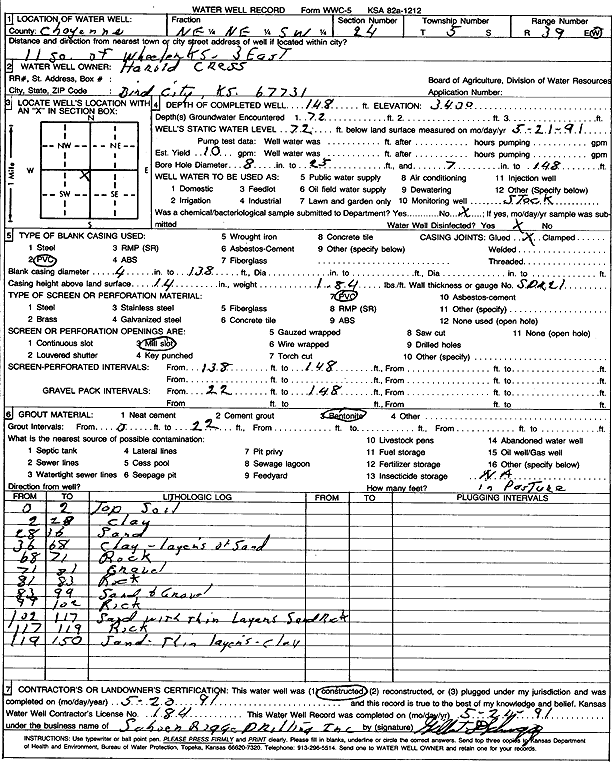 WATER WELL RECORD Form WWC-5 KSA 82a-1212
1 LOCATION OF WATER WELL: Fraction Section Number Township Number Range Number
County: Cheyenne NE ¼ NE ¼ SW ¼ 24 T 5 S R 39 E/W
Distance and direction from nearest town or city street address of well if located within city?
11 So. of Wheeler KS - 3 East
2 WATER WELL OWNER: Harold Cress
RR#, St. Address, Box # : Board of Agriculture, Division of Water Resources
City, State, ZIP Code : Bird City, KS. 67731 Application Number:
3 LOCATE WELL'S LOCATION WITH AN "X" IN SECTION BOX:
N
NW NE
W E
X
SW SE
S
1 Mile
4 DEPTH OF COMPLETED WELL 148 ft. ELEVATION: 3430
Depth(s) Groundwater Encountered 1. 72 ft. 2. ft. 3. ft.
WELL'S STATIC WATER LEVEL 72 ft. below land surface measured on mo/day/yr 5-21-91
Pump test data: Well water was ft. after hours pumping gpm
Est. Yield 10 gpm Well water was ft. after hours pumping gpm
Bore Hole Diameter 8 in. to 25 ft., and 7 in. to 148 ft.
WELL WATER TO BE USED AS: 5 Public water supply 8 Air conditioning 11 Injection well
1 Domestic 3 Feedlot 6 Oil field water supply 9 Dewatering 12 Other (Specify below)
2 Irrigation 4 Industrial 7 Lawn and garden only 10 Monitoring well Stock
Was a chemical/bacteriological sample submitted to Department? Yes No X ; If yes, mo/day/yr sample was submitted
Water Well Disinfected? Yes X No
5 TYPE OF BLANK CASING USED: 5 Wrought iron 8 Concrete tile CASING JOINTS: Glued X Clamped
1 Steel 3 RMP (SR) 6 Asbestos-Cement 9 Other (specify below) Welded
2 PVC 4 ABS 7 Fiberglass Threaded
Blank casing diameter 4 in. to 138 ft., Dia in. to ft., Dia in. to ft.
Casing height above land surface 14 in., weight 1.84 lbs./ft. Wall thickness or gauge No. SDR21
TYPE OF SCREEN OR PERFORATION MATERIAL: 7 PVC 10 Asbestos-cement
1 Steel 3 Stainless steel 5 Fiberglass 8 RMP (SR) 11 Other (specify)
2 Brass 4 Galvanized steel 6 Concrete tile 9 ABS 12 None used (open hole)
SCREEN OR PERFORATION OPENINGS ARE: 5 Gauzed wrapped 8 Saw cut 11 None (open hole)
1 Continuous slot 3 Mill slot 6 Wire wrapped 9 Drilled holes
2 Louvered shutter 4 Key punched 7 Torch cut 10 Other (specify)
SCREEN-PERFORATED INTERVALS: From 138 ft. to 148 ft., From ft. to ft.
From ft. to ft., From ft. to ft.
GRAVEL PACK INTERVALS: From 22 ft. to 148 ft., From ft. to ft.
From ft. to ft., From ft. to ft.
6 GROUT MATERIAL: 1 Neat cement 2 Cement grout 3 Bentonite 4 Other
Grout Intervals: From 0 ft. to 22 ft., From ft. to ft., From ft. to ft.
What is the nearest source of possible contamination: 10 Livestock pens 14 Abandoned water well
1 Septic tank 4 Lateral lines 7 Pit privy 11 Fuel storage 15 Oil well/Gas well
2 Sewer lines 5 Cess pool 8 Sewage lagoon 12 Fertilizer storage 16 Other (specify below)
3 Watertight sewer lines 6 Seepage pit 9 Feedyard 13 Insecticide storage N.A
Direction from well? How many feet? in Pasture
FROM TO LITHOLOGIC LOG FROM TO PLUGGING INTERVALS
0 2 Top Soil
2 28 Clay
28 36 Sand
36 68 Clay - layers of Sand
68 71 Rock
71 81 Gravel
81 83 Rock
83 99 Sand & Gravel
99 102 Rock
102 117 Sand with thin Layers Sand Rock
117 119 Rock
119 150 Sand - Thin layers - clay
7 CONTRACTOR'S OR LANDOWNER'S CERTIFICATION: This water well was (1) constructed, (2) reconstructed, or (3) plugged under my jurisdiction and was
completed on (mo/day/year) 5-23-91 and this record is true to the best of my knowledge and belief. Kansas
Water Well Contractor's License No. 184 This Water Well Record was completed on (mo/day/yr) 5-24-91
under the business name of Drilling Inc by (signature)
INSTRUCTIONS: Use typewriter or ball point pen. PLEASE PRESS FIRMLY and PRINT clearly. Please fill in blanks, underline or circle the correct answers. Send top three copies to Kansas Department
of Health and Environment, Bureau of Water Protection, Topeka, Kansas 66620-7320. Telephone: 913-296-5514. Send one to WATER WELL OWNER and retain one for your records.